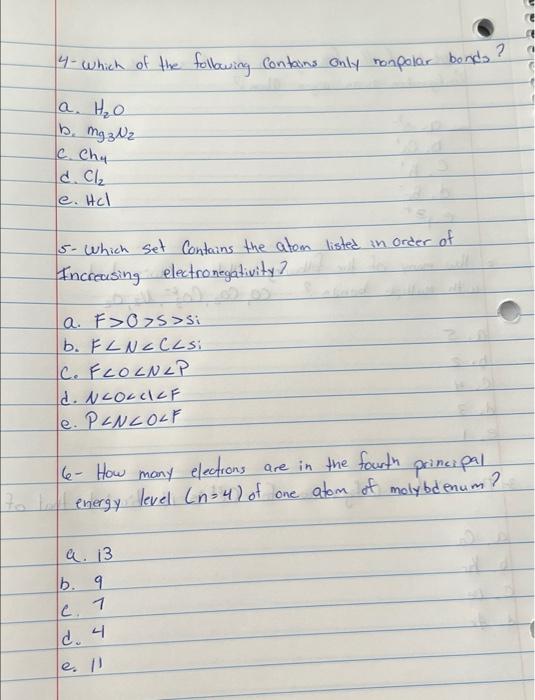 4- which of the following Contains only nonpolar bonds?
a. H₂O
b. mg₃N₂
c. Ch₄
d. Cl₂
e. Hcl
5- which set Contains the atom listed in order of
Increasing electronegativity?
a. F>O>S>Si
b. F<N<C<Si
C. F<O<N<P
d. N<O<Cl<F
e. P<N<O<F
6- How many electrons are in the fourth principal
energy level (n=4) of one atom of molybdenum?
a. 13
b. 9
c. 7
d. 4
e. 11